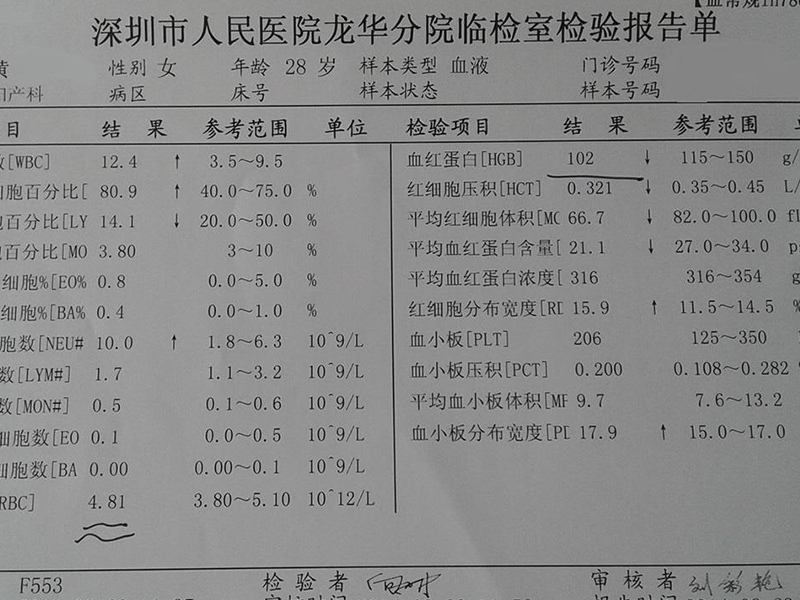 深圳市人民医院龙华分院临检室检验报告单
性别 女 年龄 28 岁 样本类型 血液 门诊号码
妇产科 病区 床号 样本状态 样本号码
目 结 果 参考范围 单位 检验项目 结 果 参考范围
[WBC] 12.4 ↑ 3.5～9.5 血红蛋白[HGB] 102 ↓ 115～150 g/
胞百分比[ 80.9 ↑ 40.0～75.0 % 红细胞压积[HCT] 0.321 ↓ 0.35～0.45 L/
胞百分比[LY 14.1 ↓ 20.0～50.0 % 平均红细胞体积[MC 66.7 ↓ 82.0～100.0 fl
胞百分比[MO 3.80 3～10 % 平均血红蛋白含量[ 21.1 ↓ 27.0～34.0 p
细胞%[EO% 0.8 0.0～5.0 % 平均血红蛋白浓度[ 316 316～354 g
细胞%[BA% 0.4 0.0～1.0 % 红细胞分布宽度[RD 15.9 ↑ 11.5～14.5 %
胞数[NEU# 10.0 ↑ 1.8～6.3 10^9/L 血小板[PLT] 206 125～350
数[LYM#] 1.7 1.1～3.2 10^9/L 血小板压积[PCT] 0.200 0.108～0.282
数[MON#] 0.5 0.1～0.6 10^9/L 平均血小板体积[MP 9.7 7.6～13.2
细胞数[EO 0.1 0.0～0.5 10^9/L 血小板分布宽度[PD 17.9 ↑ 15.0～17.0
细胞数[BA 0.00 0.00～0.1 10^9/L
RBC] 4.81 3.80～5.10 10^12/L
F553 检 验 者 审 核 者 刘彩艳